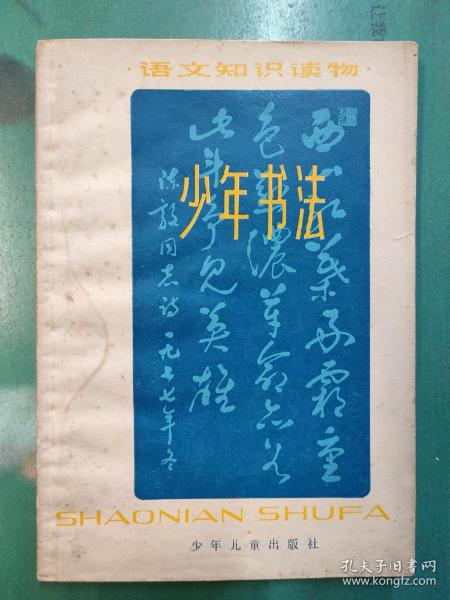 ·语文知识读物·
少年书法
西山红葉好霜重
色愈濃革命亦如
此斗争见英雄
陈毅同志诗一九七七年冬
SHAONIAN SHUFA
少年儿童出版社
孔夫子旧书网
www.kongfz.com